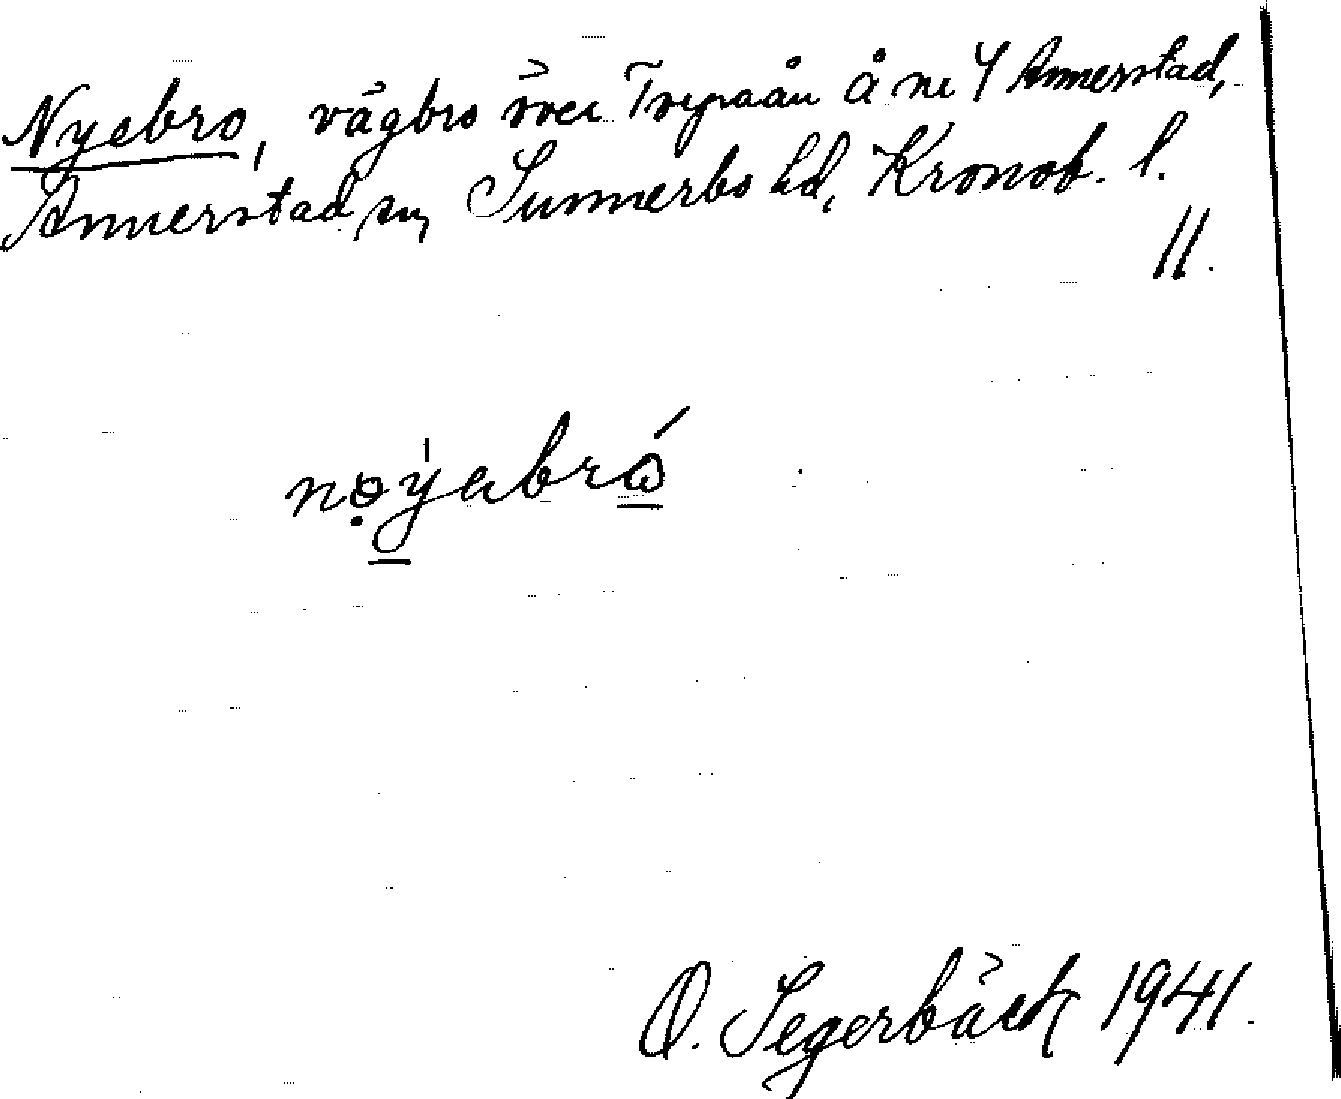 Nyebro, vägbro över Trypaån å ne Y Annerstad,
Annerstad sn, Sunnerbo hd, Kronob. l.
11.
nø̣yabró
O. Segerbäck 1941.